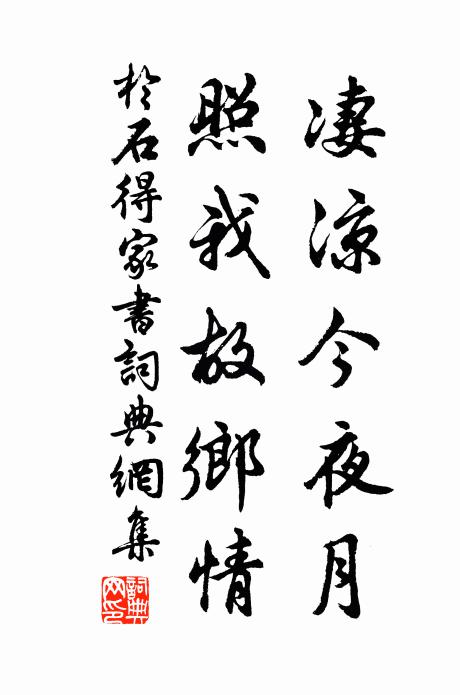 凄涼今夜月
照我故鄉情
於石得家書詞典網集
詞典網印